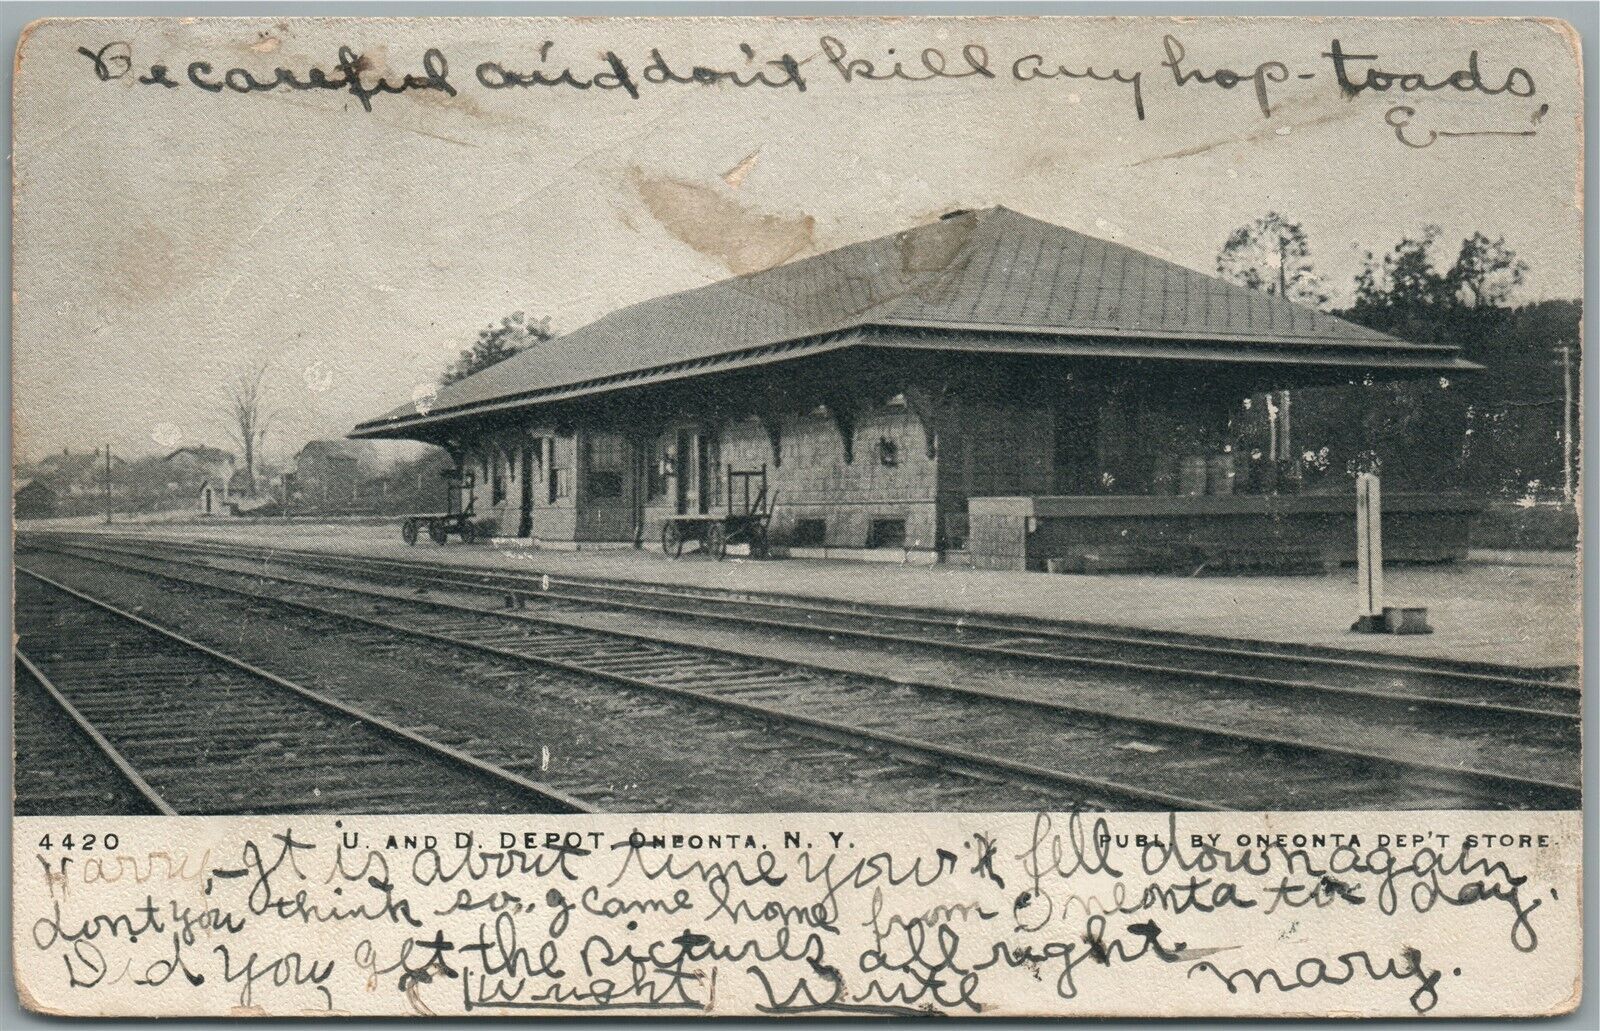 Be careful and don't kill any hop-toads,
E
4420 U. AND D. DEPOT, ONEONTA, N. Y. PUBL. BY ONEONTA DEP'T STORE.
Harry,- It is about time you fell down again
dont you think so. I came home from Oneonta to day.
Did you get the pictures all right.
(Wright) Write Mary.